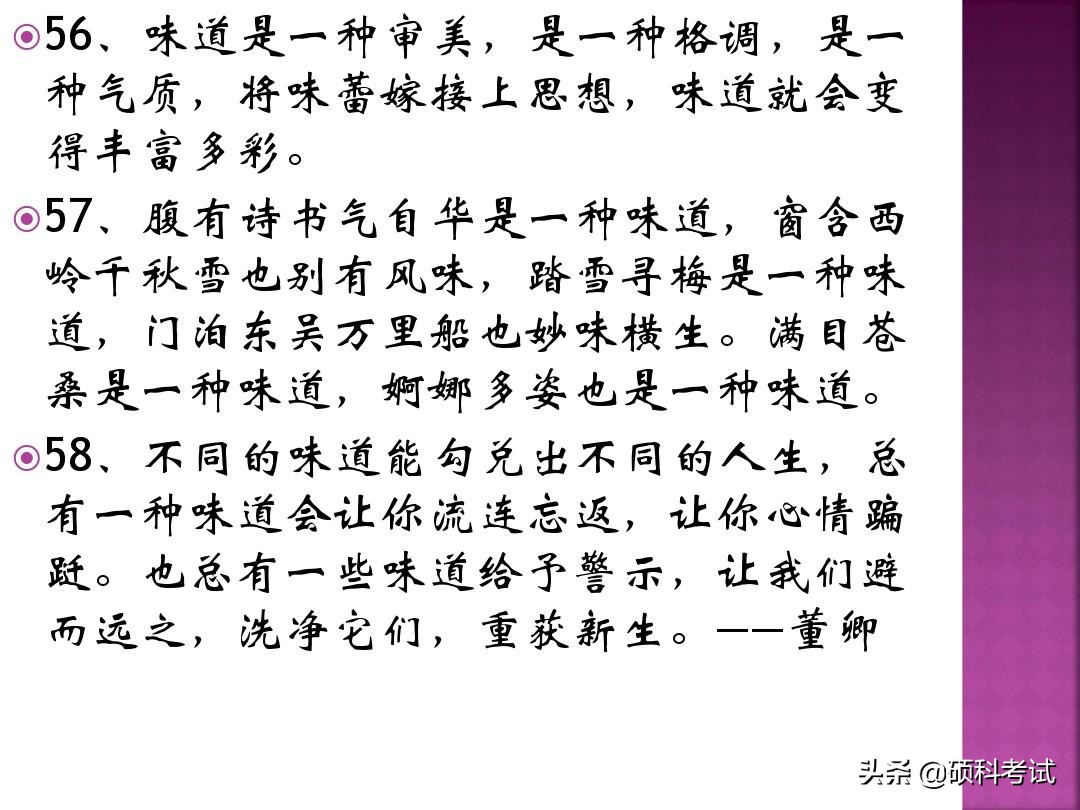 56、味道是一种审美，是一种格调，是一
种气质，将味蕾嫁接上思想，味道就会变
得丰富多彩。
57、腹有诗书气自华是一种味道，窗含西
岭千秋雪也别有风味，踏雪寻梅是一种味
道，门泊东吴万里船也妙味横生。满目苍
桑是一种味道，婀娜多姿也是一种味道。
58、不同的味道能勾兑出不同的人生，总
有一种味道会让你流连忘返，让你心情蹁
跹。也总有一些味道给予警示，让我们避
而远之，洗净它们，重获新生。——董卿
头条 @硕科考试